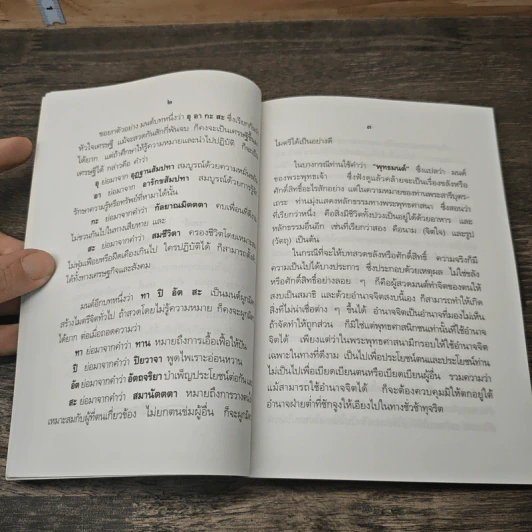 ๒
ขอยกตัวอย่าง มนต์บทหนึ่งว่า อุ อา กะ สะ ซึ่งเรียกกันว่า
หัวใจเศรษฐี แม้จะสวดกันสักกี่พันจบ ก็คงจะเป็นเศรษฐีขึ้นมา
ได้ยาก แต่ถ้าศึกษาให้รู้ความหมายและนำไปปฏิบัติ ก็จะเป็น
เศรษฐีได้ กล่าวคือ คำว่า
อุ ย่อมาจาก อุฏฐานสัมปทา สมบูรณ์ด้วยความหมั่น
อา ย่อมาจาก อารักขสัมปทา สมบูรณ์ด้วยการรู้จัก
รักษาความรู้หรือทรัพย์ที่หามาได้นั้น
กะ ย่อมาจาก กัลยาณมิตตตา คบเพื่อนที่ดี
ไม่ชวนกันไปในทางเสียหาย และ
สะ ย่อมาจาก สมชีวิตา ครองชีวิตโดยเหมาะสม
ไม่ฟุ่มเฟือยหรือฝืดเคืองเกินไป ใครปฏิบัติได้ ก็สามารถตั้ง
ได้ทั้งทางเศรษฐกิจและสังคม
มนต์อีกบทหนึ่งว่า ทา ปิ อัต สะ เป็นมนต์ผูกมิตร
สร้างไมตรีจิตทั่วไป ถ้าสวดโดยไม่รู้ความหมาย ก็คงจะผูกมิตร
ได้ยาก ต่อเมื่อถอดความว่า
ทา ย่อมาจากคำว่า ทาน หมายถึงการเอื้อเฟื้อให้ปัน
ปิ ย่อมาจากคำว่า ปิยวาจา พูดไพเราะอ่อนหวาน
อัต ย่อมาจากคำว่า อัตถจริยา บำเพ็ญประโยชน์ต่อกัน
สะ ย่อมาจากคำว่า สมานัตตตา หมายถึงการวางตน
เหมาะสมกับผู้ที่ตนเกี่ยวข้อง ไม่ยกตนข่มผู้อื่น ก็จะผูก
๓
ไมตรีได้เป็นอย่างดี
ในบางกรณีท่านใช้คำว่า "พุทธมนต์" ซึ่งแปลว่า มนต์
ของพระพุทธเจ้า ซึ่งฟังดูแล้วคล้ายจะเป็นเรื่องขลังหรือ
ศักดิ์สิทธิ์อะไรสักอย่าง แต่ในความหมายของท่านพระสารีบุตร
เถระ ท่านมุ่งแสดงหลักธรรมทางพระพุทธศาสนา ซึ่งสอนว่า
ที่เรียกว่าหนึ่ง คือสิ่งมีชีวิตทั้งปวงเป็นอยู่ได้ด้วยอาหาร และ
หลักธรรมอื่นอีก เช่นที่เรียกว่าสอง คือนาม (จิตใจ) และรูป
(วัตถุ) เป็นต้น
ในกรณีที่จะให้บทสวดขลังหรือศักดิ์สิทธิ์ ความจริงก็มี
ความเป็นไปได้บางประการ ซึ่งประกอบด้วยเหตุผล ไม่ใช่ขลัง
หรือศักดิ์สิทธิ์อย่างลอย ๆ ก็คือผู้สวดมนต์ทำจิตของตนให้
สงบเป็นสมาธิ และด้วยอำนาจจิตสงบนี้เอง ก็สามารถทำให้เกิด
สิ่งที่ไม่น่าเชื่อต่าง ๆ ขึ้นได้ อำนาจจิตเป็นอำนาจที่มองไม่เห็น
ถ้าจัดทำให้ถูกส่วน ก็มิใช่แต่พุทธศาสนิกชนเท่านั้นที่ใช้อำนาจ
จิตได้ เพียงแต่ว่าในพระพุทธศาสนามีกรอบให้ใช้อำนาจจิต
เฉพาะในทางที่ดีงาม เป็นไปเพื่อประโยชน์ตนและประโยชน์ท่าน
ไม่เป็นไปเพื่อเบียดเบียนตนหรือเบียดเบียนผู้อื่น รวมความว่า
แม้สามารถใช้อำนาจจิตได้ ก็จะต้องควบคุมมิให้ตกอยู่ใต้
อำนาจฝ่ายต่ำที่ชักจูงให้เอียงไปในทางชั่วช้าทุจริต